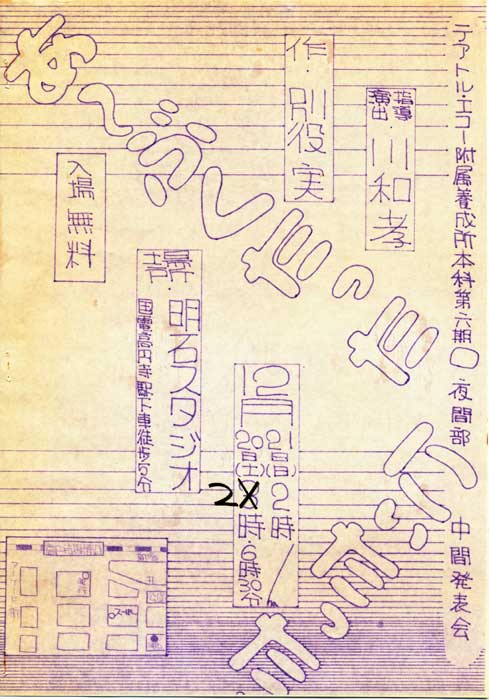 テアトル・エコー附属養成所本科第六期 夜間部 中間発表会
指導
演出・川和孝
作・別役実
あ〜ぶくたった にいたった
入場無料
場所 明石スタジオ
国電高円寺駅下車徒歩5分
12月
21日(日)2時
20日(土)2時・6時30分